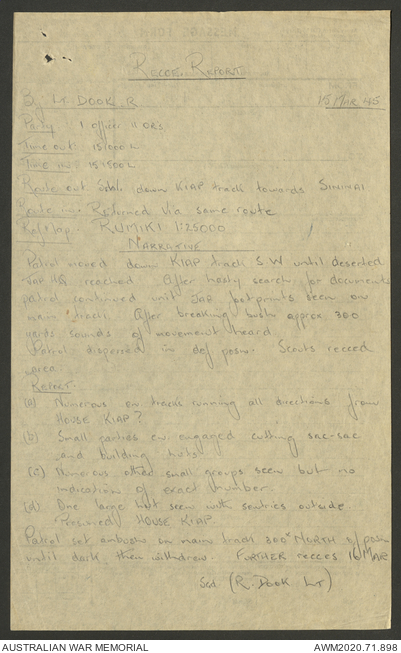 RECCE REPORT
By: Lt DOOK R 15 MAR 45
Party 1 officer 11 ORs
Time out: 151000 L
Time in: 151500 L
Route out down KIAP track towards SINIMAI
Route in: Returned via same route
Ref Map RUMIKI 1:25000
NARRATIVE
Patrol moved down KIAP track S.W until deserted
JAP HQ reached After hasty search for documents
patrol continued until JAP footprints seen on
main track. After breaking bush approx 300
yards sounds of movement heard
Patrol dispersed in def posn. Scouts recced
area.
REPORT.
(a) Numerous en tracks running all directions from
HOUSE KIAP?
(b) Small parties en engaged cutting sac-sac
and building huts.
(c) Numerous other small groups seen but no
indication of exact number.
(d) One large hut seen with sentries outside.
Presumed HOUSE KIAP
Patrol set ambush on main track 300ˣ NORTH of posn
until dark, then withdrew. FURTHER recces 16 MAR
Sgd (R. DOOK Lt)
AUSTRALIAN WAR MEMORIAL AWM2020.71.898